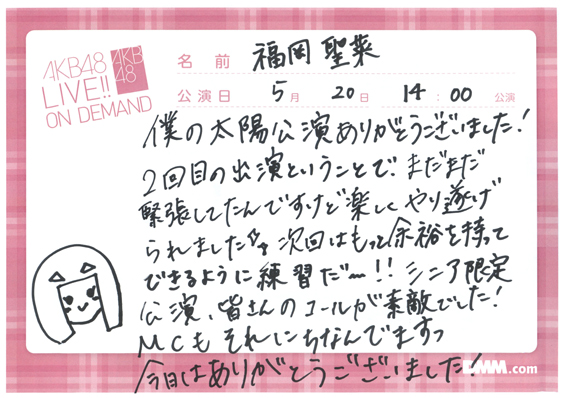 AKB48
LIVE!!
ON DEMAND
AKB
48
名前 福岡聖菜
公演日 5月 20日 14:00 公演
僕の太陽公演ありがとうございました!
2回目の出演ということで、まだまだ
緊張してたんですけど楽しくやり遂げ
られました 次回はもっと余裕を持って
できるように練習だー!! シニア限定
公演、皆さんのコールが素敵でした!
MCもそれにちなんでますっ
今日はありがとうございました!
DMM.com